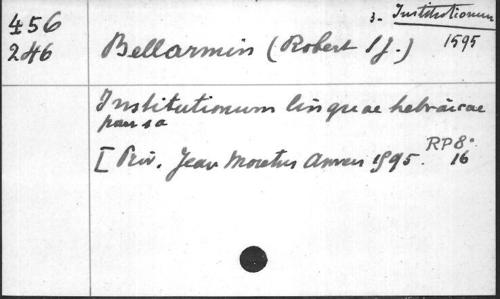 456
246
3. Institutionum
Bellarmin (Robert S J.) 1595
Institutionum linguae hebraicae
pars
[ Priv. Jean Moretus Anvers 1595. RP8°
16